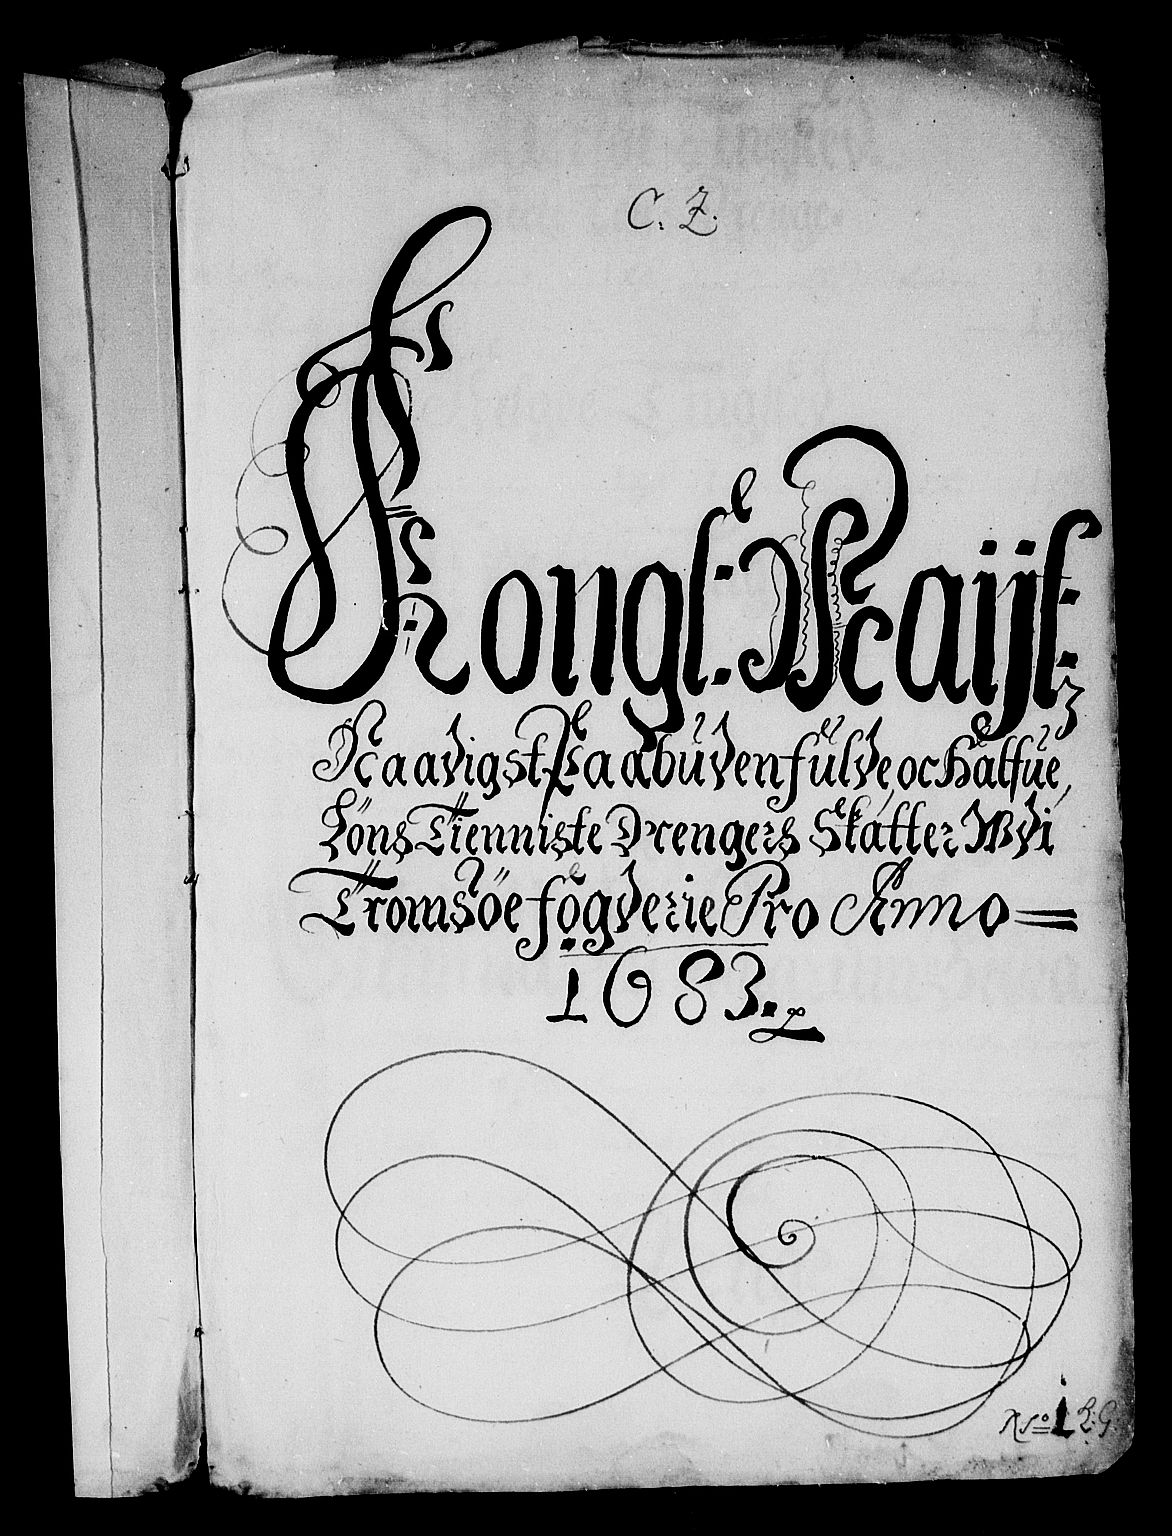 C. Z.
Kongl: Maijt:z
Naadigst Paabuden fulde, oc Halfue,
Löns Tienniste Drengers Skatter Udi
Tromsöe fögderie Pro Anno
1683.
1